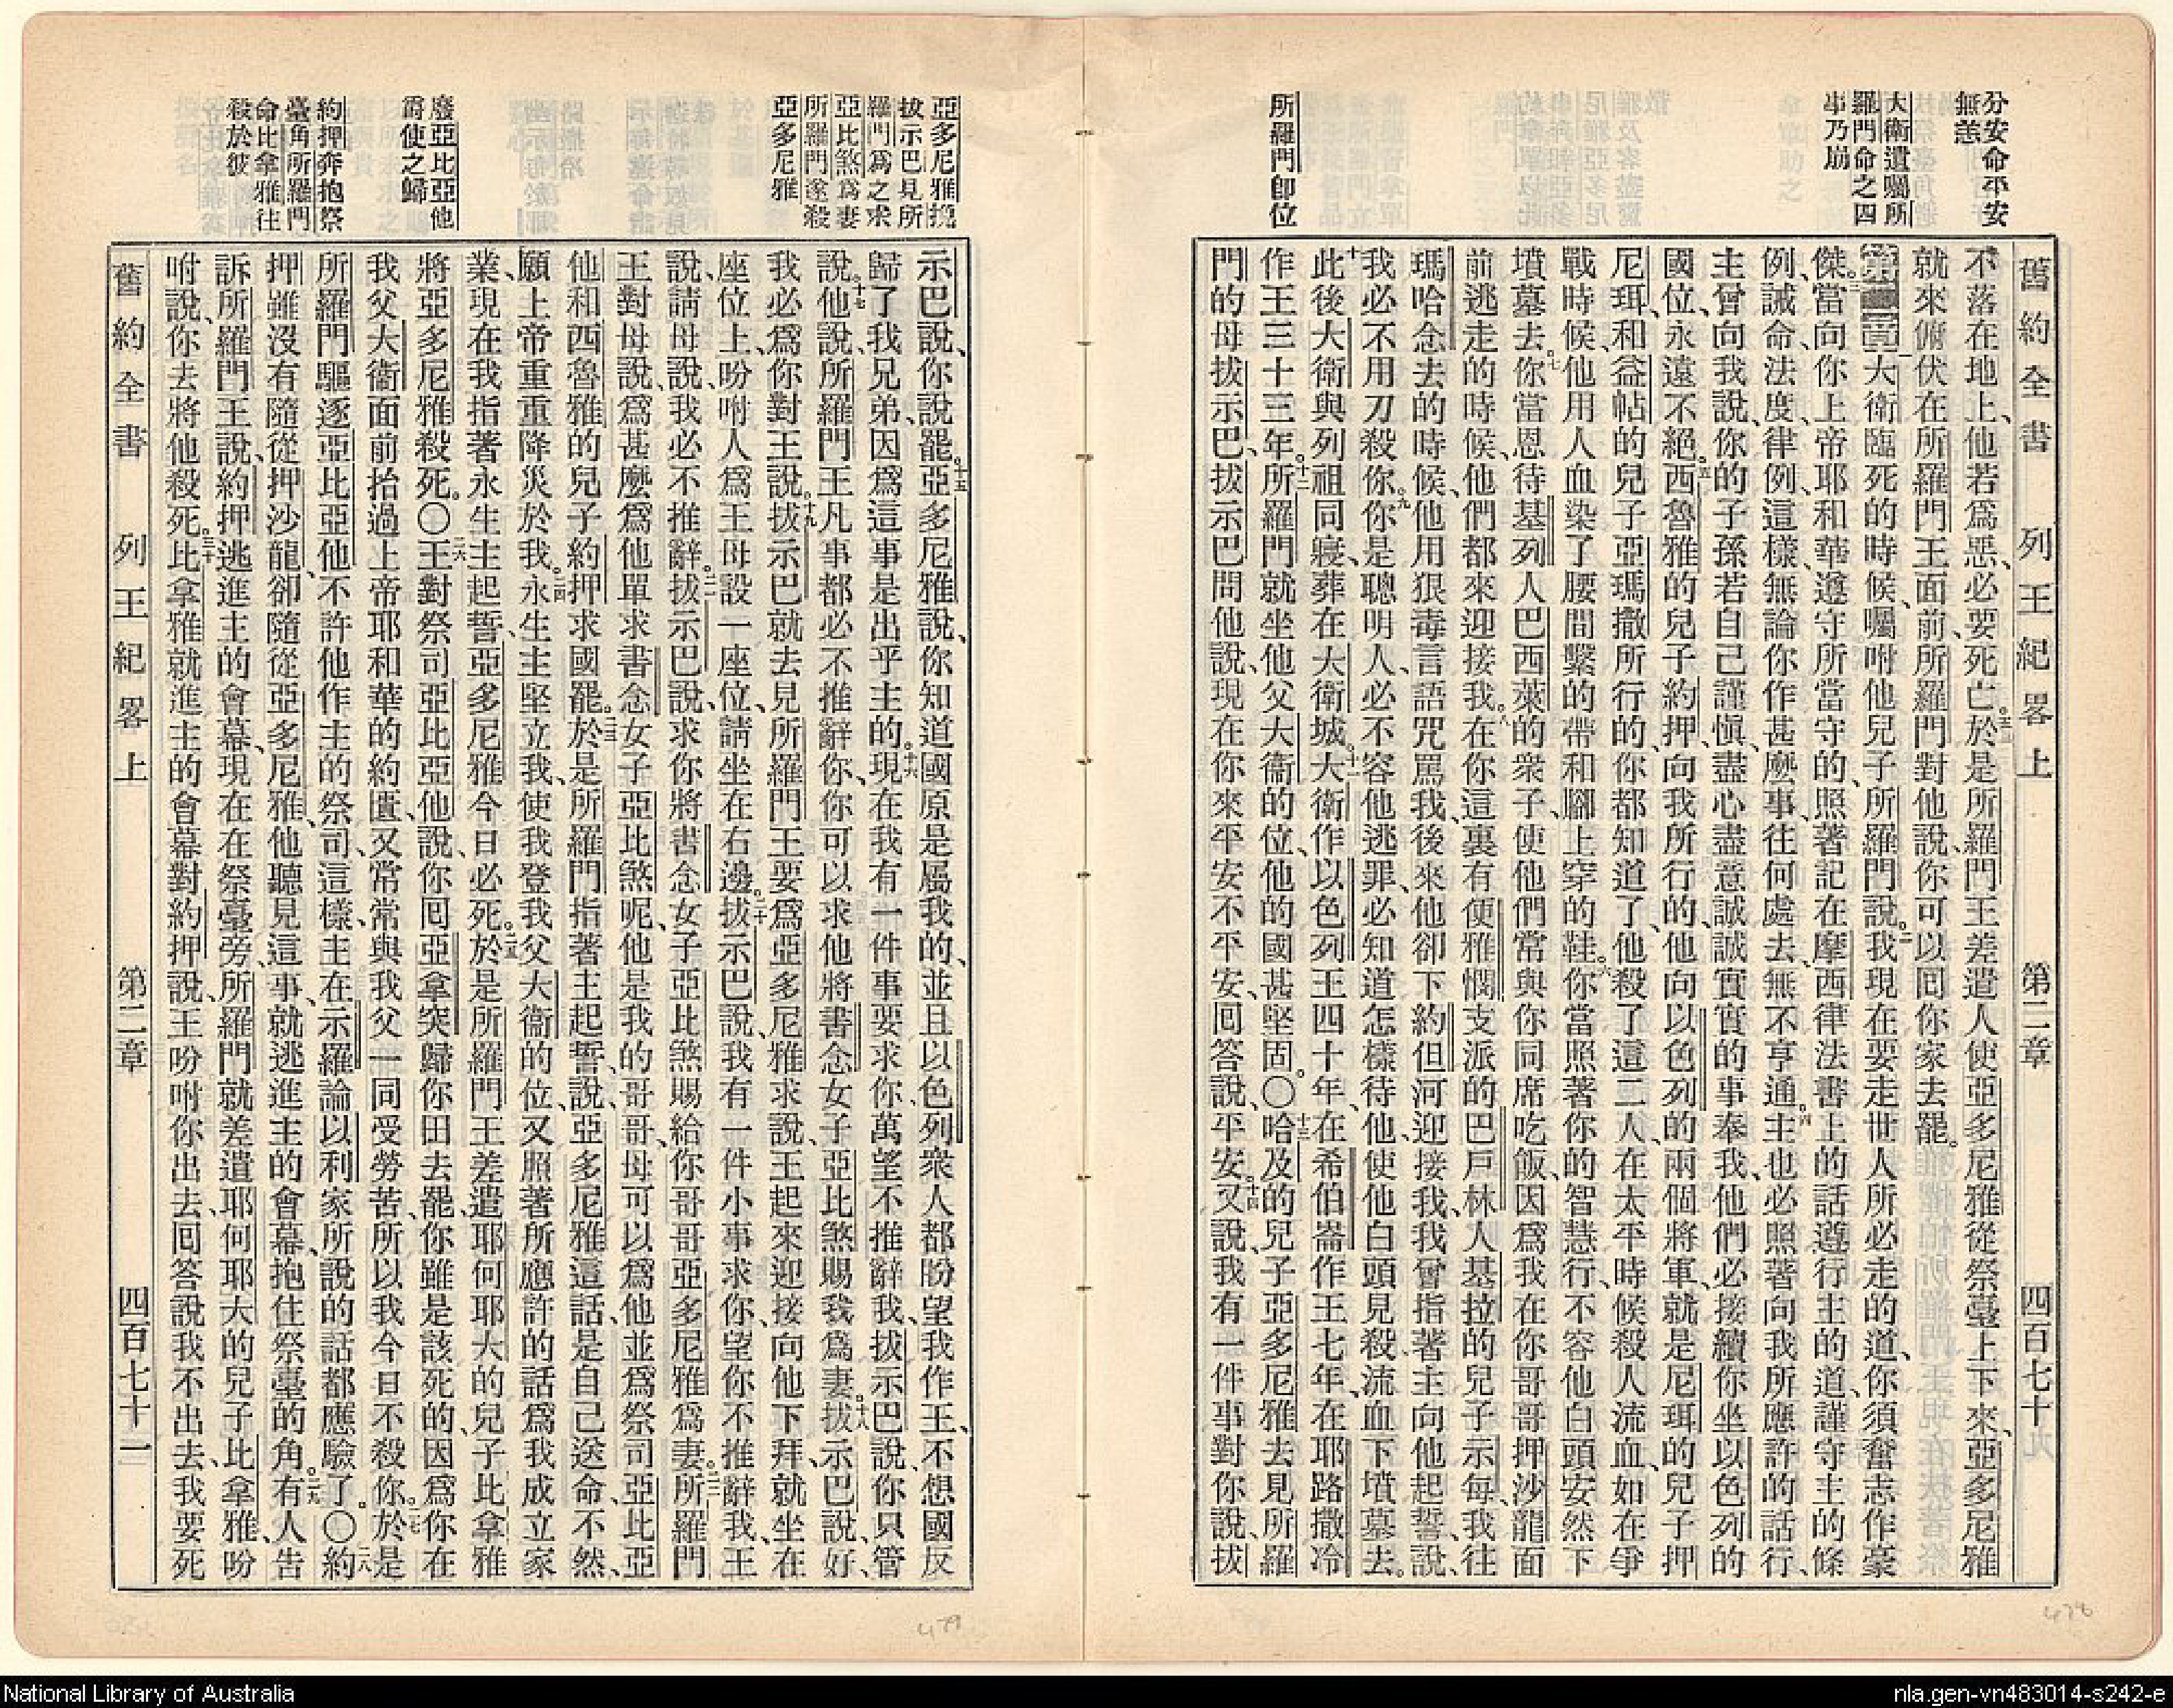 分安命平安
無恙
大衛遺囑所
羅門命之四
事乃崩
所羅門卽位
舊約全書 列王紀畧上 第二章 四百七十
不落在地上、他若爲惡、必要死亡。五三於是所羅門王差遣人使亞多尼雅從祭臺上下來、亞多尼雅
就來俯伏在所羅門王面前、所羅門對他說、你可以囘你家去罷。
第二章 一大衛臨死的時候、囑咐他兒子所羅門說。二我現在要走世人所必走的道、你須奮志作豪
傑。三當向你上帝耶和華遵守所當守的、照著記在摩西律法書上的話遵行主的道、謹守主的條
例、誡命、法度、律例、這樣、無論你作甚麽事、往何處去、無不亨通。四主也必照著向我所應許的話行、
主曾向我說、你的子孫若自己謹愼、盡心盡意誠誠實實的事奉我、他們必接續你坐以色列的
國位、永遠不絕。五西魯雅的兒子約押、向我所行的、他向以色列的兩個將軍、就是尼珥的兒子押
尼珥、和益帖的兒子亞瑪撒所行的、你都知道了、他殺了這二人、在太平時候殺人流血、如在爭
戰時候、他用人血染了腰間繫的帶和腳上穿的鞋。六你當照著你的智慧行、不容他白頭安然下
墳墓去。七你當恩待基列人巴西萊的衆子、使他們常與你同席吃飯、因爲我在你哥哥押沙龍面
前逃走的時候、他們都來迎接我。八在你這裏有便雅憫支派的巴戶林人基拉的兒子示每、我往
瑪哈念去的時候、他用狠毒言語咒罵我、後來他卻下約但河迎接我、我曾指著主向他起誓、說、
我必不用刀殺你。九你是聰明人、必不容他逃罪、必知道怎樣待他、使他白頭見殺、流血下墳墓去。
十此後大衛與列祖同寢、葬在大衛城。十一大衛作以色列王四十年、在希伯崙作王七年、在耶路撒冷
作王三十三年。十二所羅門就坐他父大衞的位、他的國甚堅固。〇十三哈及的兒子亞多尼雅去見所羅
門的母拔示巴、拔示巴問他說、現在你來平安不平安、囘答說、平安。十四又說、我有一件事對你說、拔
亞多尼雅挽
拔示巴見所
羅門爲之求
亞比煞爲妻
所羅門遂殺
亞多尼雅
廢亞比亞他
爵使之歸
約押奔抱祭
臺角所羅門
命比拿雅往
殺於彼
示巴說、你說罷。十五亞多尼雅說、你知道國原是屬我的、並且以色列衆人都盼望我作王、不想國反
歸了我兄弟、因爲這事是出乎主的。十六現在我有一件事要求你、萬望不推辭我、拔示巴說、你只管
說。十七他說、所羅門王凡事都必不推辭你、你可以求他將書念女子亞比煞賜我爲妻。十八拔示巴說、好、
我必爲你對王說。十九拔示巴就去見所羅門王、要爲亞多尼雅求說、王起來迎接、向他下拜、就坐在
座位上、吩咐人爲王母設一座位、請坐在右邊。二十拔示巴說、我有一件小事求你、望你不推辭我、王
說、請母說、我必不推辭。二一拔示巴說、求你將書念女子亞比煞賜給你哥哥亞多尼雅爲妻。二二所羅門
王對母說、爲甚麽爲他單求書念女子亞比煞呢、他是我的哥哥、母可以爲他並爲祭司亞比亞
他和西魯雅的兒子約押求國罷。二三於是所羅門指著主起誓、說、亞多尼雅這話是自己送命、不然、
願上帝重重降災於我。二四永生主堅立我、使我登我父大衞的位、又照著所應許的話爲我成立家
業、現在我指著永生主起誓、亞多尼雅今日必死。二五於是所羅門王差遣耶何耶大的兒子比拿雅
將亞多尼雅殺死。〇二六王對祭司亞比亞他說、你囘亞拿突歸你田去罷、你雖是該死的、因爲你在
我父大衞面前抬過上帝耶和華的約匱、又常常與我父一同受勞苦、所以我今日不殺你。二七於是
所羅門驅逐亞比亞他、不許他作主的祭司、這樣、主在示羅論以利家所說的話都應驗了。〇二八約
押雖沒有隨從押沙龍、卻隨從亞多尼雅、他聽見這事、就逃進主的會幕、抱住祭臺的角。二九有人告
訴所羅門王說、約押逃進主的會幕、現在在祭臺旁、所羅門就差遣耶何耶大的兒子比拿雅、吩
咐說、你去將他殺死。三十比拿雅就進主的會幕、對約押說、王吩咐你出去、囘答說、我不出去、我要死
舊約全書 列王紀畧上 第二章 四百七十一
478
479
National Library of Australia
nla.gen-vn483014-s242-e